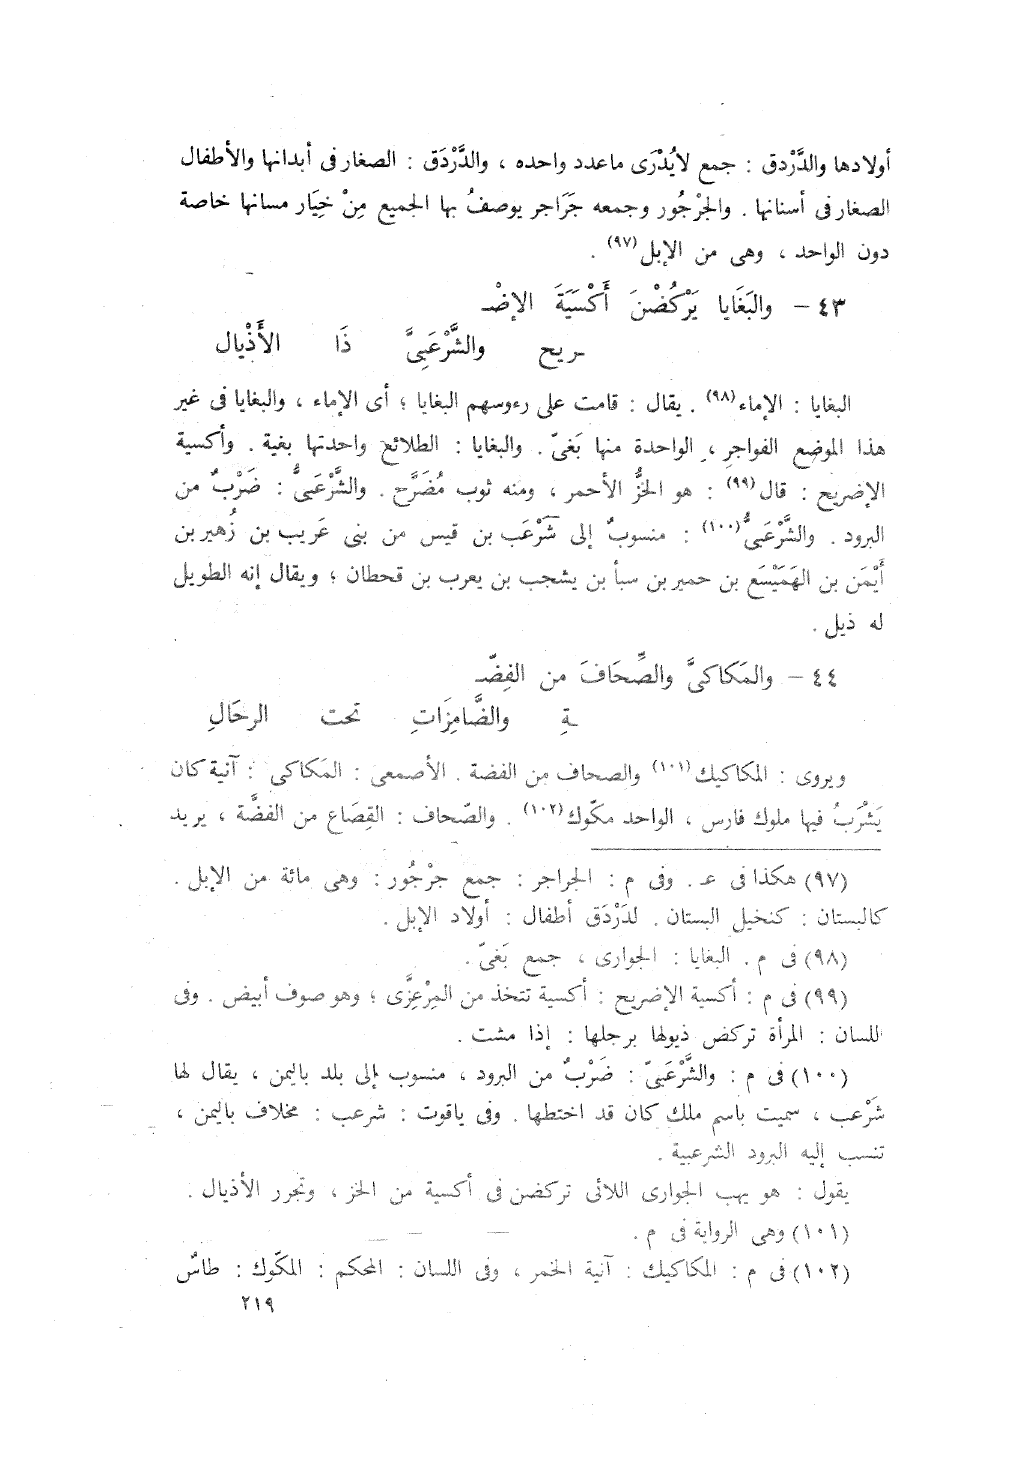 أولادها والدَّرْدق : جمع لايُدْرَى ماعدد واحده ، والدَّرْدَق : الصغار فى أبدانها والأطفال
الصغار فى أسنانها . والجرْجُور وجمعه جَرَاجر يوصفُ بها الجميع مِنْ خِيَار مسانها خاصة
دون الواحد ، وهى من الإبل(٩٧) .
٤٣ – والبَغَايا يَرْكُضْنَ أَكْسَيَةَ الإضْـ
ـريح والشَّرْعَبِىَّ ذَا الأَذْيال
البغايا : الإماء(٩٨) . يقال : قامت على رءوسهم البغايا ؛ أى الإماء ، والبغايا فى غير
هذا الموضع الفواجر ، الواحدة منها بَغىّ . والبغايا : الطلائع واحدتها بغية . وأكسية
الإضريح : قال(٩٩) : هو الخزُّ الأحمر ، ومنه ثوب مُضَرَّح . والشَّرْعَبىُّ : ضَرْبٌ من
البرود . والشَّرْعَبىُّ(١٠٠) : منسوبٌ إلى شَرْعَب بن قيس من بنى عَريب بن زُهير بن
أَيْمَن بن الهَمَيْسَع بن حمير بن سبأ بن يشجب بن يعرب بن قحطان ؛ ويقال إنه الطويل
له ذيل .
٤٤ – والمَكاكىَّ والصِّحَافَ من الفِضّـ
ـةِ والضَّامِزَاتِ تحت الرحَالِ
ويروى : المكاكيك(١٠١) والصحاف من الفضة . الأصمعى : المَكاكى : آنية كان
يَشْرَبُ فيها ملوك فارس ، الواحد مكّوك(١٠٢) . والصّحاف : القِصَاع من الفضَّة ، يريد
(٩٧) هكذا فى عـ . وفى م : الجراجر : جمع جرْجُور : وهى مائة من الإبل .
كالبستان : كنخيل البستان . لدَرْدَق أطفال : أولاد الإبل .
(٩٨) فى م . البغايا : الجوارى ، جمع بَغىّ .
(٩٩) فى م : أكسية الإضريح : أكسية تتخذ من المِرْعِزَّى ؛ وهو صوف أبيض . وفى
اللسان : المرأة تركض ذيولها برجلها : إذا مشت .
(١٠٠) فى م : والشَّرْعَبىّ : ضَرْبٌ من البرود ، منسوب إلى بلد باليمن ، يقال لها
شَرْعب ، سميت باسم ملك كان قد اختطها . وفى ياقوت : شرعب : مخلاف باليمن ،
تنسب إليه البرود الشرعبية .
يقول : هو يهب الجوارى اللائى تركضن فى أكسية من الخز ، وتجرر الأذيال .
(١٠١) وهى الرواية فى م .
(١٠٢) فى م : المكاكيك : آنية الخمر ، وفى اللسان : المحكم : المكّوك : طاسٌ
٢١٩